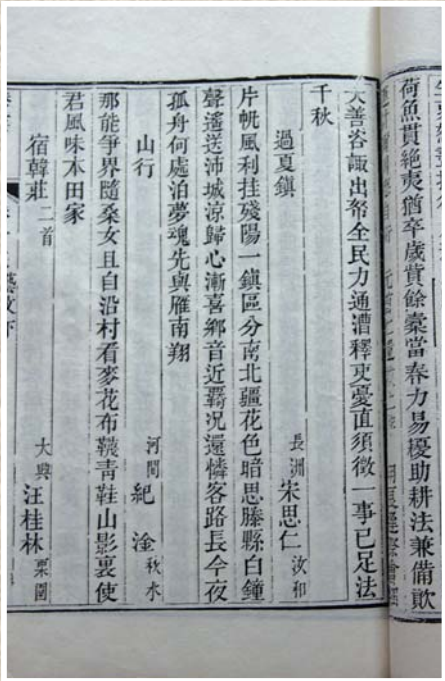 荷魚貰絶夷猶卒歲貰餘橐當春力易擾助耕法兼備歉
大善咨諏出帑全民力通漕釋吏憂直須徵一事已足法
千秋
過夏鎮
長洲 朱思仁 汝和
片帆風利挂殘陽一鎮區分南北疆花色暗思滕縣白鐘
聲遙送沛城涼歸心漸喜鄉音近覊况還憐客路長今夜
孤舟何處泊夢魂先與雁南翔
山行
河間 紀淦 秋水
那能爭界隨桑女且自沿村看麥花布韤青鞋山影裏使
君風味本田家
宿韓莊二首
大興 汪桂林 栗園
藝文下